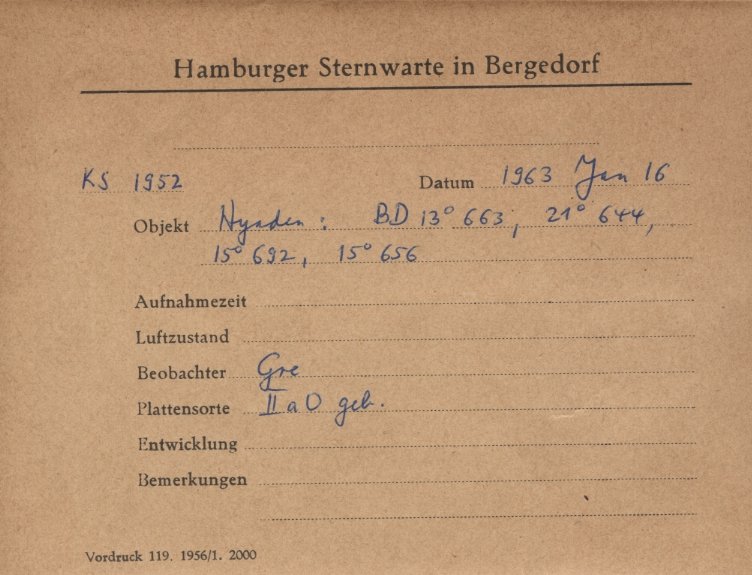 Hamburger Sternwarte in Bergedorf
KS 1952 Datum 1963 Jan 16
Objekt Hyaden: BD 13° 663, 21° 644,
15° 692, 15° 656
Aufnahmezeit
Luftzustand
Beobachter Gre
Plattensorte II a O geb.
Entwicklung
Bemerkungen
Vordruck 119. 1956/1. 2000